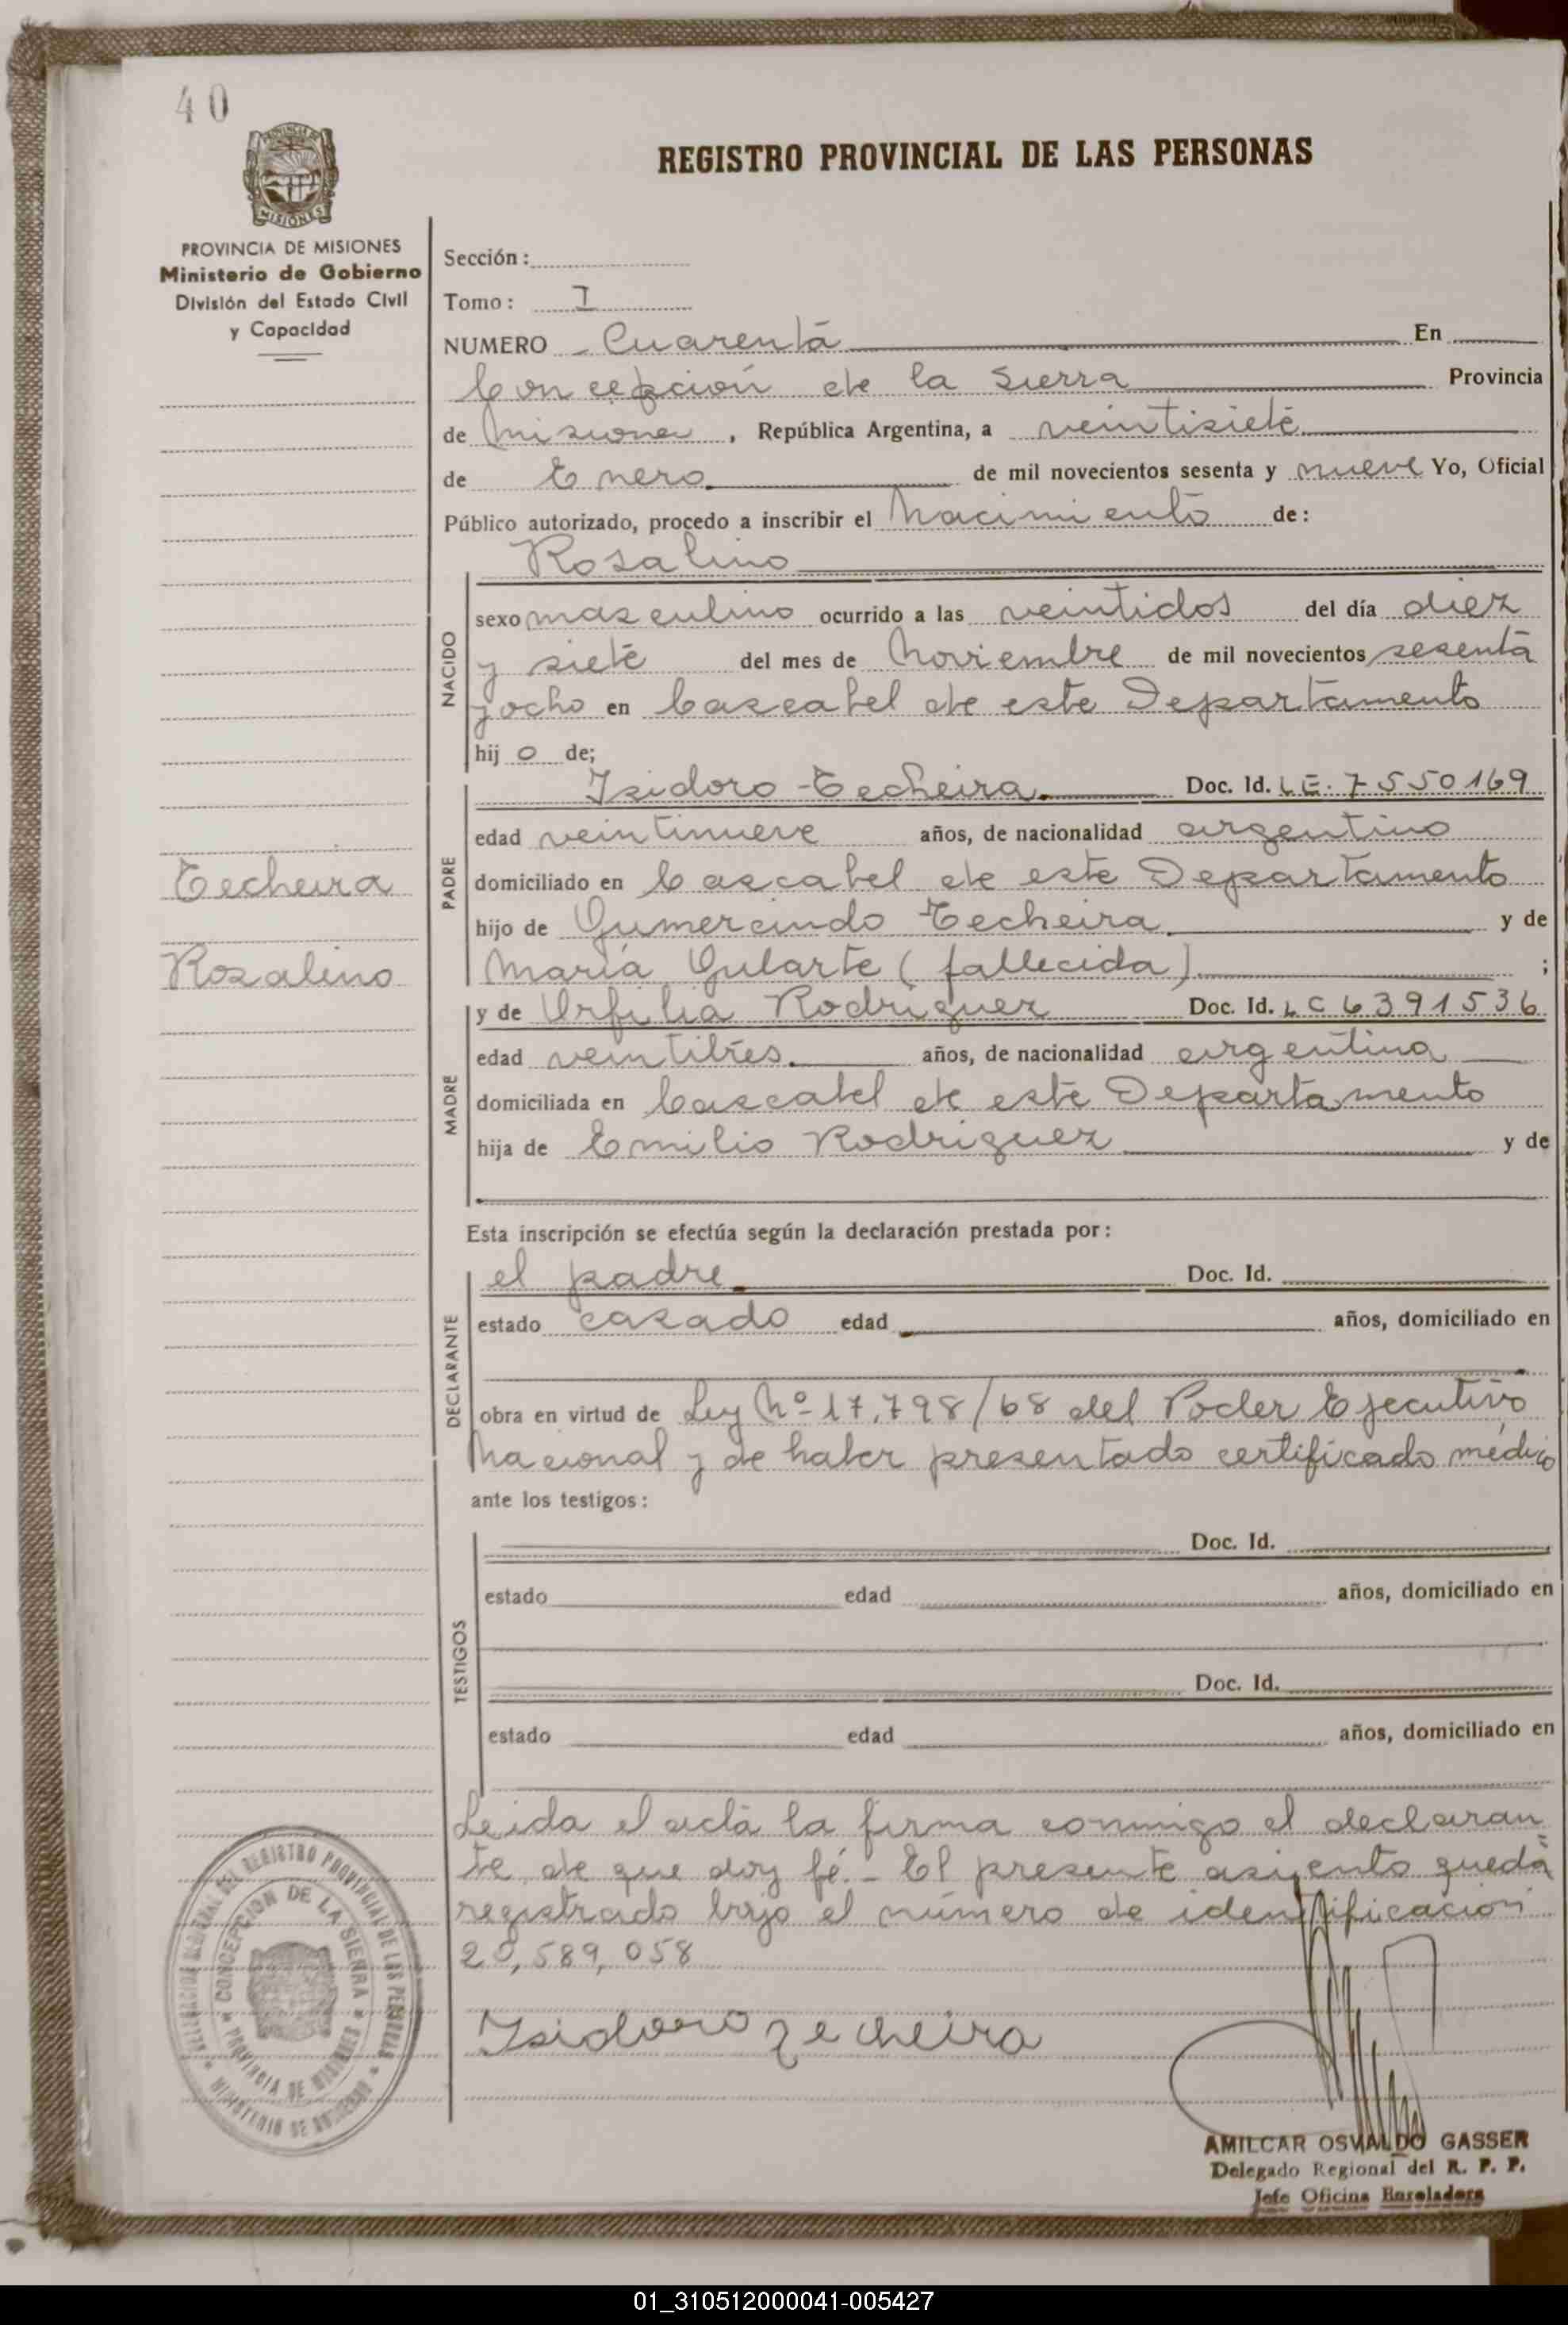 40
REGISTRO PROVINCIAL DE LAS PERSONAS
MISIONES
PROVINCIA DE MISIONES
Ministerio de Gobierno
División del Estado Civil
y Capacidad
Sección:
Tomo: I
NUMERO Cuarenta En
Concepción de la Sierra Provincia
de Misiones, República Argentina, a veintisiete
de Enero de mil novecientos sesenta y nueve Yo, Oficial
Público autorizado, procedo a inscribir el Nacimiento de:
Rosalino
NACIDO
sexo masculino ocurrido a las veintidos del día diez
y siete del mes de Noviembre de mil novecientos sesenta
y ocho en Cascabel de este Departamento
hijo de;
PADRE
Isidoro Techeira Doc. Id. LE. 7550169
edad veintinueve años, de nacionalidad argentino
domiciliado en Cascabel de este Departamento
hijo de Gumercindo Techeira y de
María Gularte (fallecida) ;
Techeira
Rosalino
MADRE
y de Urfilia Rodriguez Doc. Id. LC 6391536
edad veintitres años, de nacionalidad argentina
domiciliada en Cascabel de este Departamento
hija de Emilio Rodriguez y de
Esta inscripción se efectúa según la declaración prestada por:
DECLARANTE
el padre Doc. Id.
estado casado edad años, domiciliado en
obra en virtud de Ley Nº 17.798/68 del Poder Ejecutivo
Nacional y de haber presentado certificado médico
ante los testigos:
TESTIGOS
Doc. Id.
estado edad años, domiciliado en
Doc. Id.
estado edad años, domiciliado en
Leida el acta la firma conmigo el declaran=
te de que doy fé.- El presente asiento queda
registrado bajo el número de identificación
20,589,058
Isidoro Techeira
REGISTRO PROVINCIAL DE LAS PERSONAS
CONCEPCION DE LA SIERRA
PROVINCIA DE MISIONES
MINISTERIO DE GOBIERNO
AMILCAR OSVALDO GASSER
Delegado Regional del R. P. P.
Jefe Oficina Enroladora
01_310512000041-005427